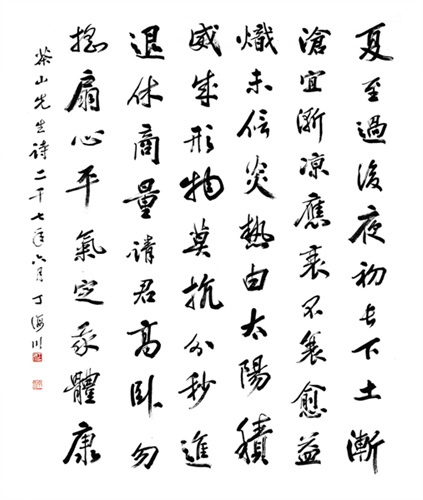 夏至過後夜初長下土漸
滄宜漸凉應衰不衰愈益
熾未信炎熱由太陽積
威成形物莫抗分秒進
退休商量請君高臥勿
搖扇心平氣定衆體康
茶山先生詩二千七年六月丁海川